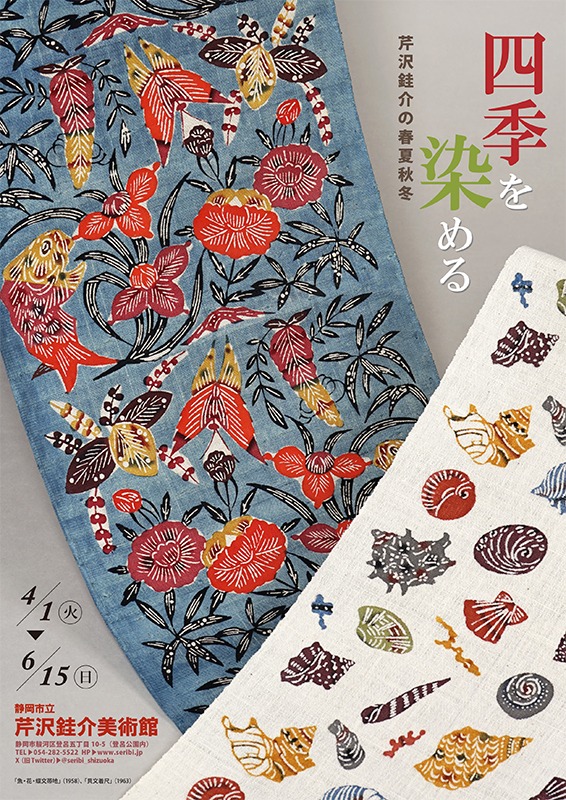 四季を染める
芹沢銈介の春夏秋冬
4/1㊋
▼
6/15㊐
静岡市立
芹沢銈介美術館
静岡市駿河区登呂五丁目10-5（登呂公園内）
TEL▶054-282-5522 HP▶www.seribi.jp
X（旧Twitter）▶@seribi_shizuoka
「魚・花・蝶文帯地」（1958）、「貝文着尺」（1963）